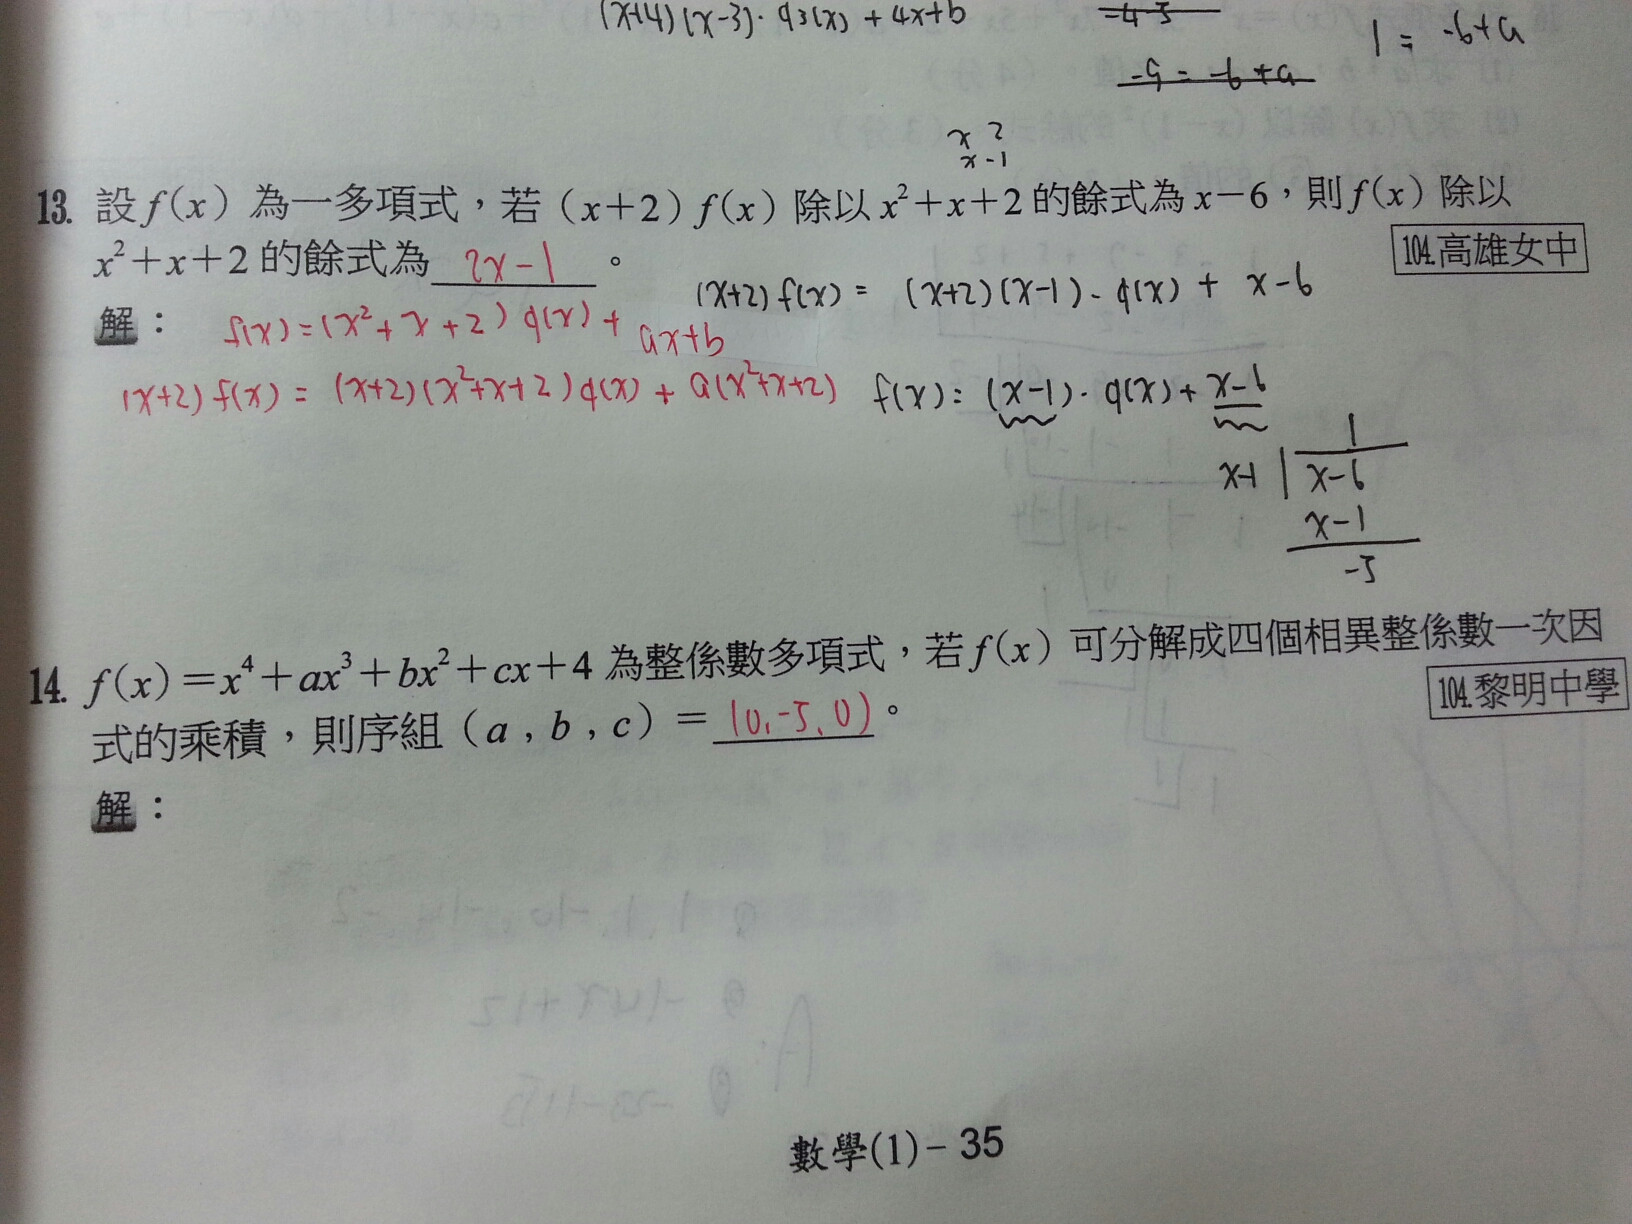 (x+4)(x-3)·q3(x) + 4x+b
-4 5
1 = -6+a
-9 = -6+a
x 2
x -1
13. 設f(x)為一多項式,若(x+2)f(x)除以x²+x+2的餘式為x-6,則f(x)除以
x²+x+2的餘式為 2x-1 。
104.高雄女中
(x+2)f(x) = (x+2)(x-1)·q(x) + x-6
解:
f(x)=(x²+x+2)q(x)+ax+b
(x+2)f(x) = (x+2)(x²+x+2)q(x) + a(x²+x+2)
f(x)=(x-1)·q(x)+x-6
1
x-1 x-6
x-1
-5
14. f(x)=x⁴+ax³+bx²+cx+4為整係數多項式,若f(x)可分解成四個相異整係數一次因
式的乘積,則序組(a,b,c)= (0,-5,0) 。
104.黎明中學
解:
數學(1)-35